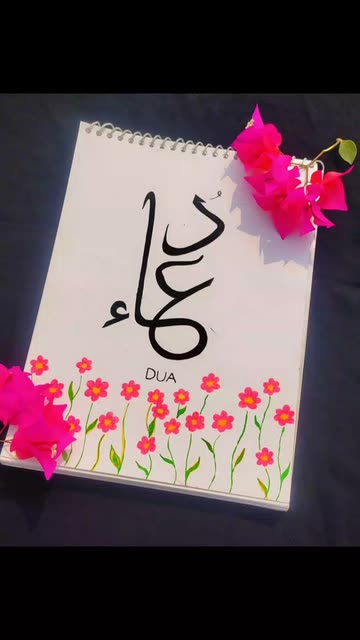 دُعاء
DUA